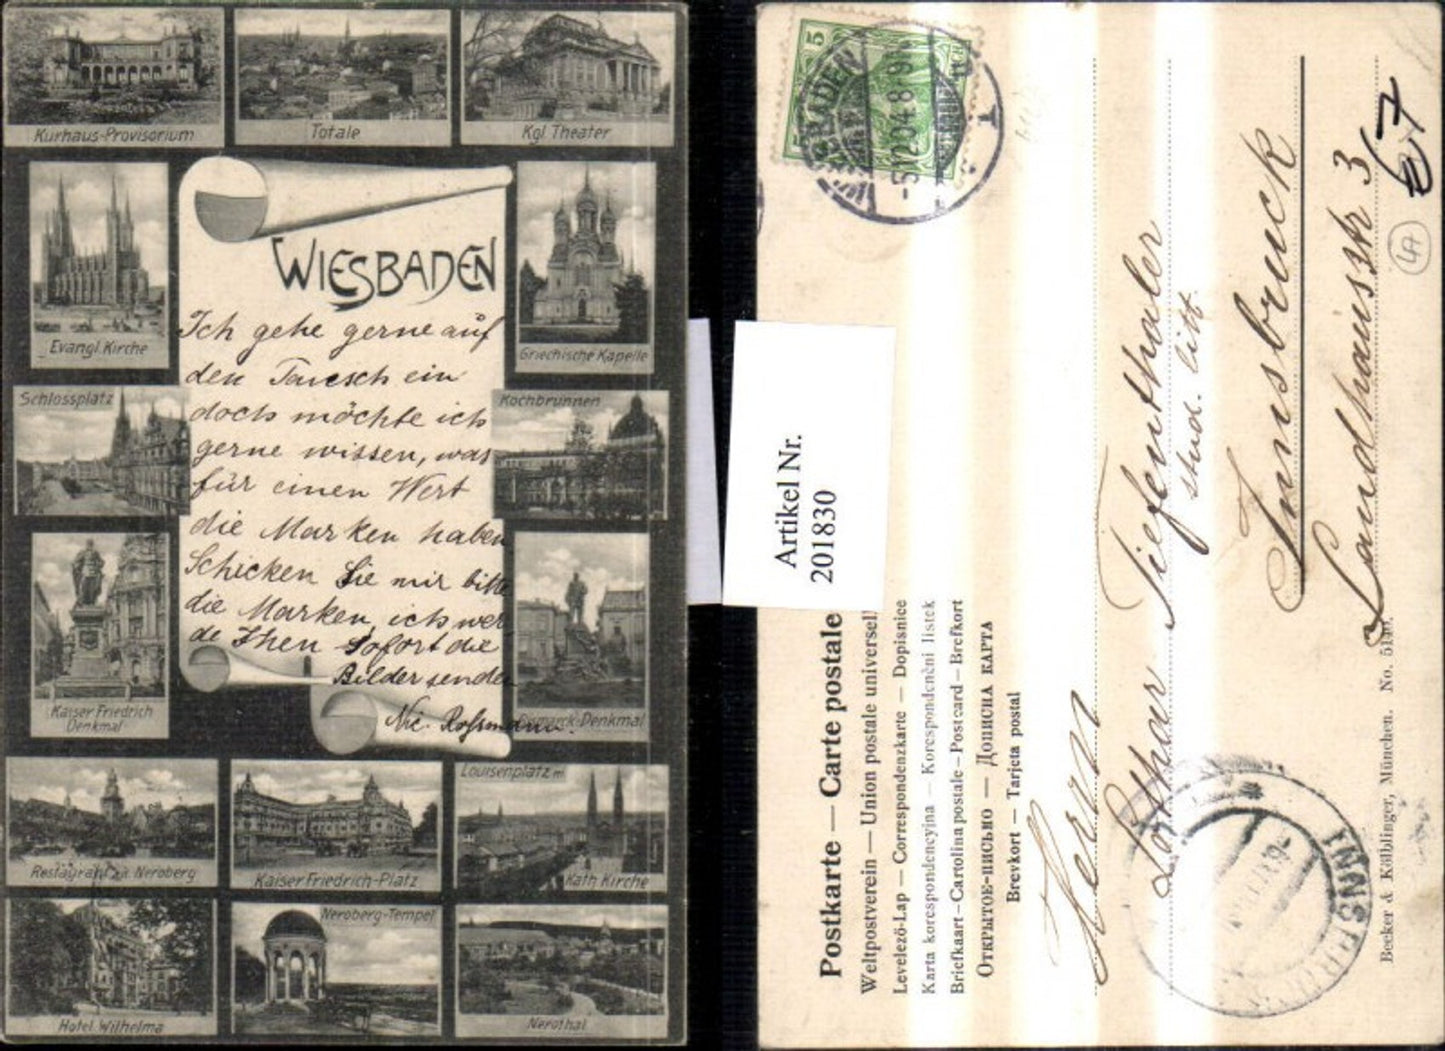 Kurhaus-Provisorium
Totale
Kgl. Theater
Evangl. Kirche
WIESBADEN
Griechische Kapelle
Ich gehe gerne auf
den Tauesch ein
doch möchte ich
gerne wissen, was
für einen Wert
die Marken haben
Schicken Sie mir bitte
die Marken, ich wer-
de Ihnen sofort die
Bilder senden
Nic. Rossmann.
Schlossplatz
Kochbrunnen
Kaiser Friedrich
Denkmal
Bismarck-Denkmal
Restaurant a.d. Neroberg
Kaiser Friedrich-Platz
Louisenplatz m.
Kath Kirche
Hotel Wilhelma
Neroberg-Tempel
Nerothal
Artikel Nr.
201830
5
WIESBADEN
-5.12.04.8-9N
1
Postkarte — Carte postale
Weltpostverein — Union postale universelle
Levelező-Lap — Correspondenzkarte — Dopisnice
Karta korespondencyjna — Korespondenční lístek
Briefkaart — Cartolina postale — Postcard — Brefkort
Открытое-письмо — Дописна карта
Brevkort — Tarjeta postal
Herrn
Lothar Tiefenthaler
stud. litt.
Innsbruck
Landhausstr 3
€7
LA
INNSBRUCK
Becker & Kölblinger, München. No. 5140.